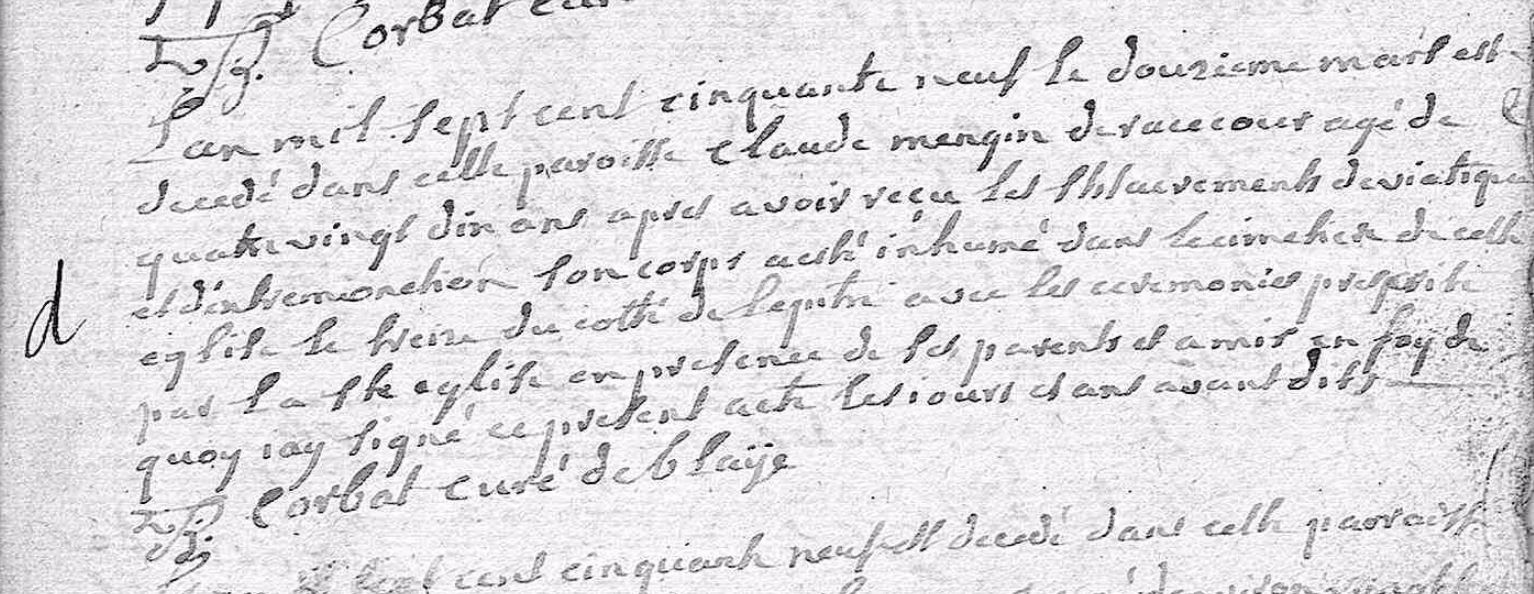 Corbat curé
L'an mil sept cent cinquante neuf le douzieme mars est
decedé dans cette paroisse Claude mengin de racecour agé de
quatre vingt dix ans apres avoir reçu les Sts sacrements de viatique
et d'extremonction son corps a esté inhumé dans le cimetiere de cette
eglise le treize du cotté de l'epitre avec les ceremonies prescrite
par la ste eglise en presence de ses parents et amis en foy de
quoy iay signé ce present acte les iours et ans avant dits
d
Corbat Curé de blaÿe
sept cent cinquante neuf est decedé dans cette paroisse